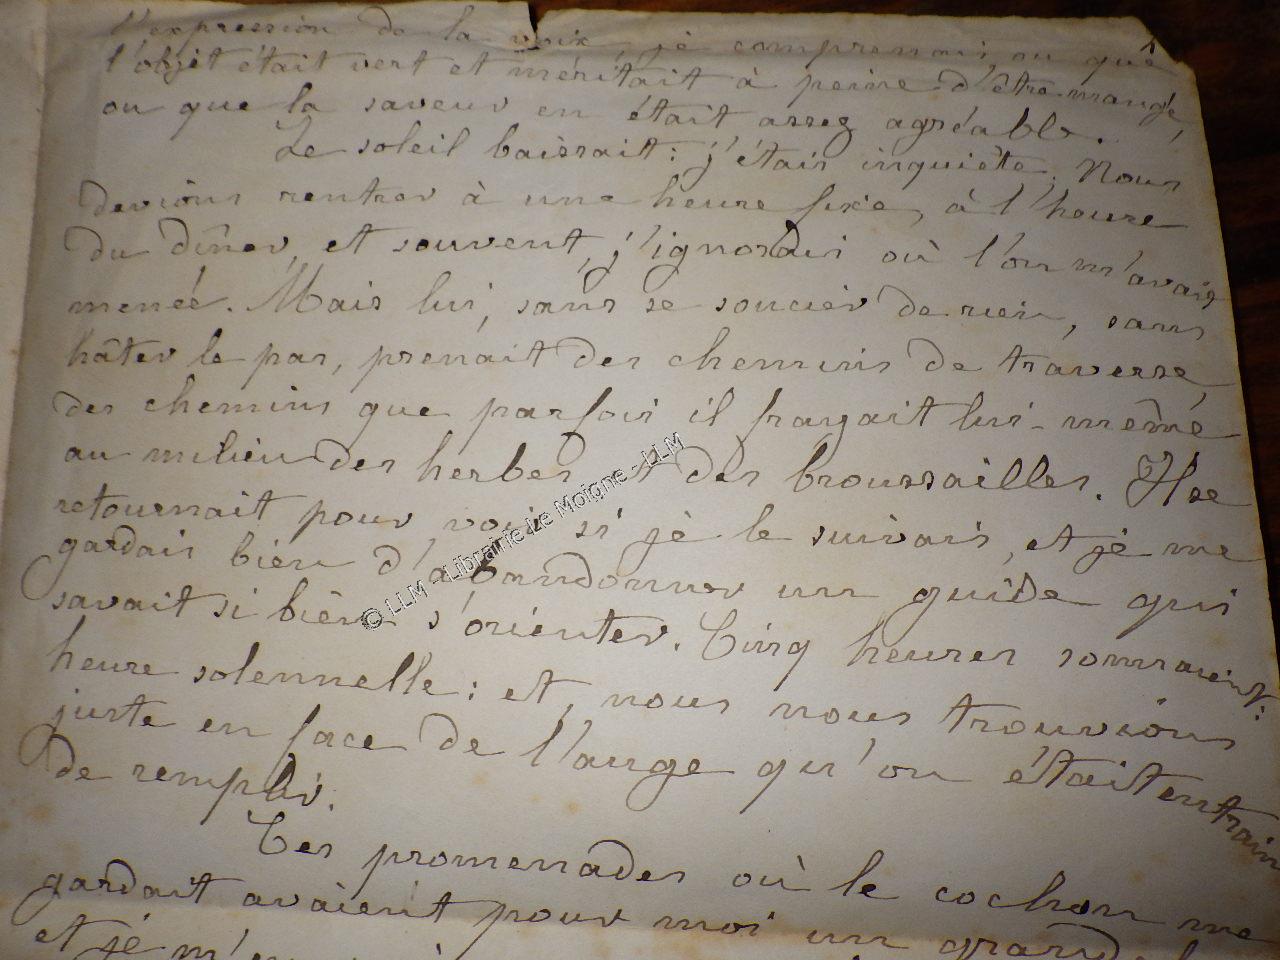 l'expression de la voix, je comprenais, ou que
l'objet était vert et méritait à peine d'être mangé,
ou que la saveur en était assez agréable.
Le soleil baissait: j'étais inquiète. Nous
devions rentrer à une heure fixe, à l'heure
du dîner, et souvent, j'ignorais où l'on m'avait
menée. Mais lui, sans se soucier de rien, sans
hâter le pas, prenait des chemins de traverse,
des chemins que parfois il frayait lui-même
au milieu des herbes et des broussailles. Il se
retournait pour voir si je le suivais, et je me
gardais bien d'abandonner un guide qui
savait si bien s'orienter. Cinq heures sonnaient:
heure solennelle: et nous nous trouvions
juste en face de l'auge qu'on était en train
de remplir.
Ces promenades où le cochon me
gardait avaient pour moi un grand
et je m'
© LLM - Librairie Le Moigne - LLM